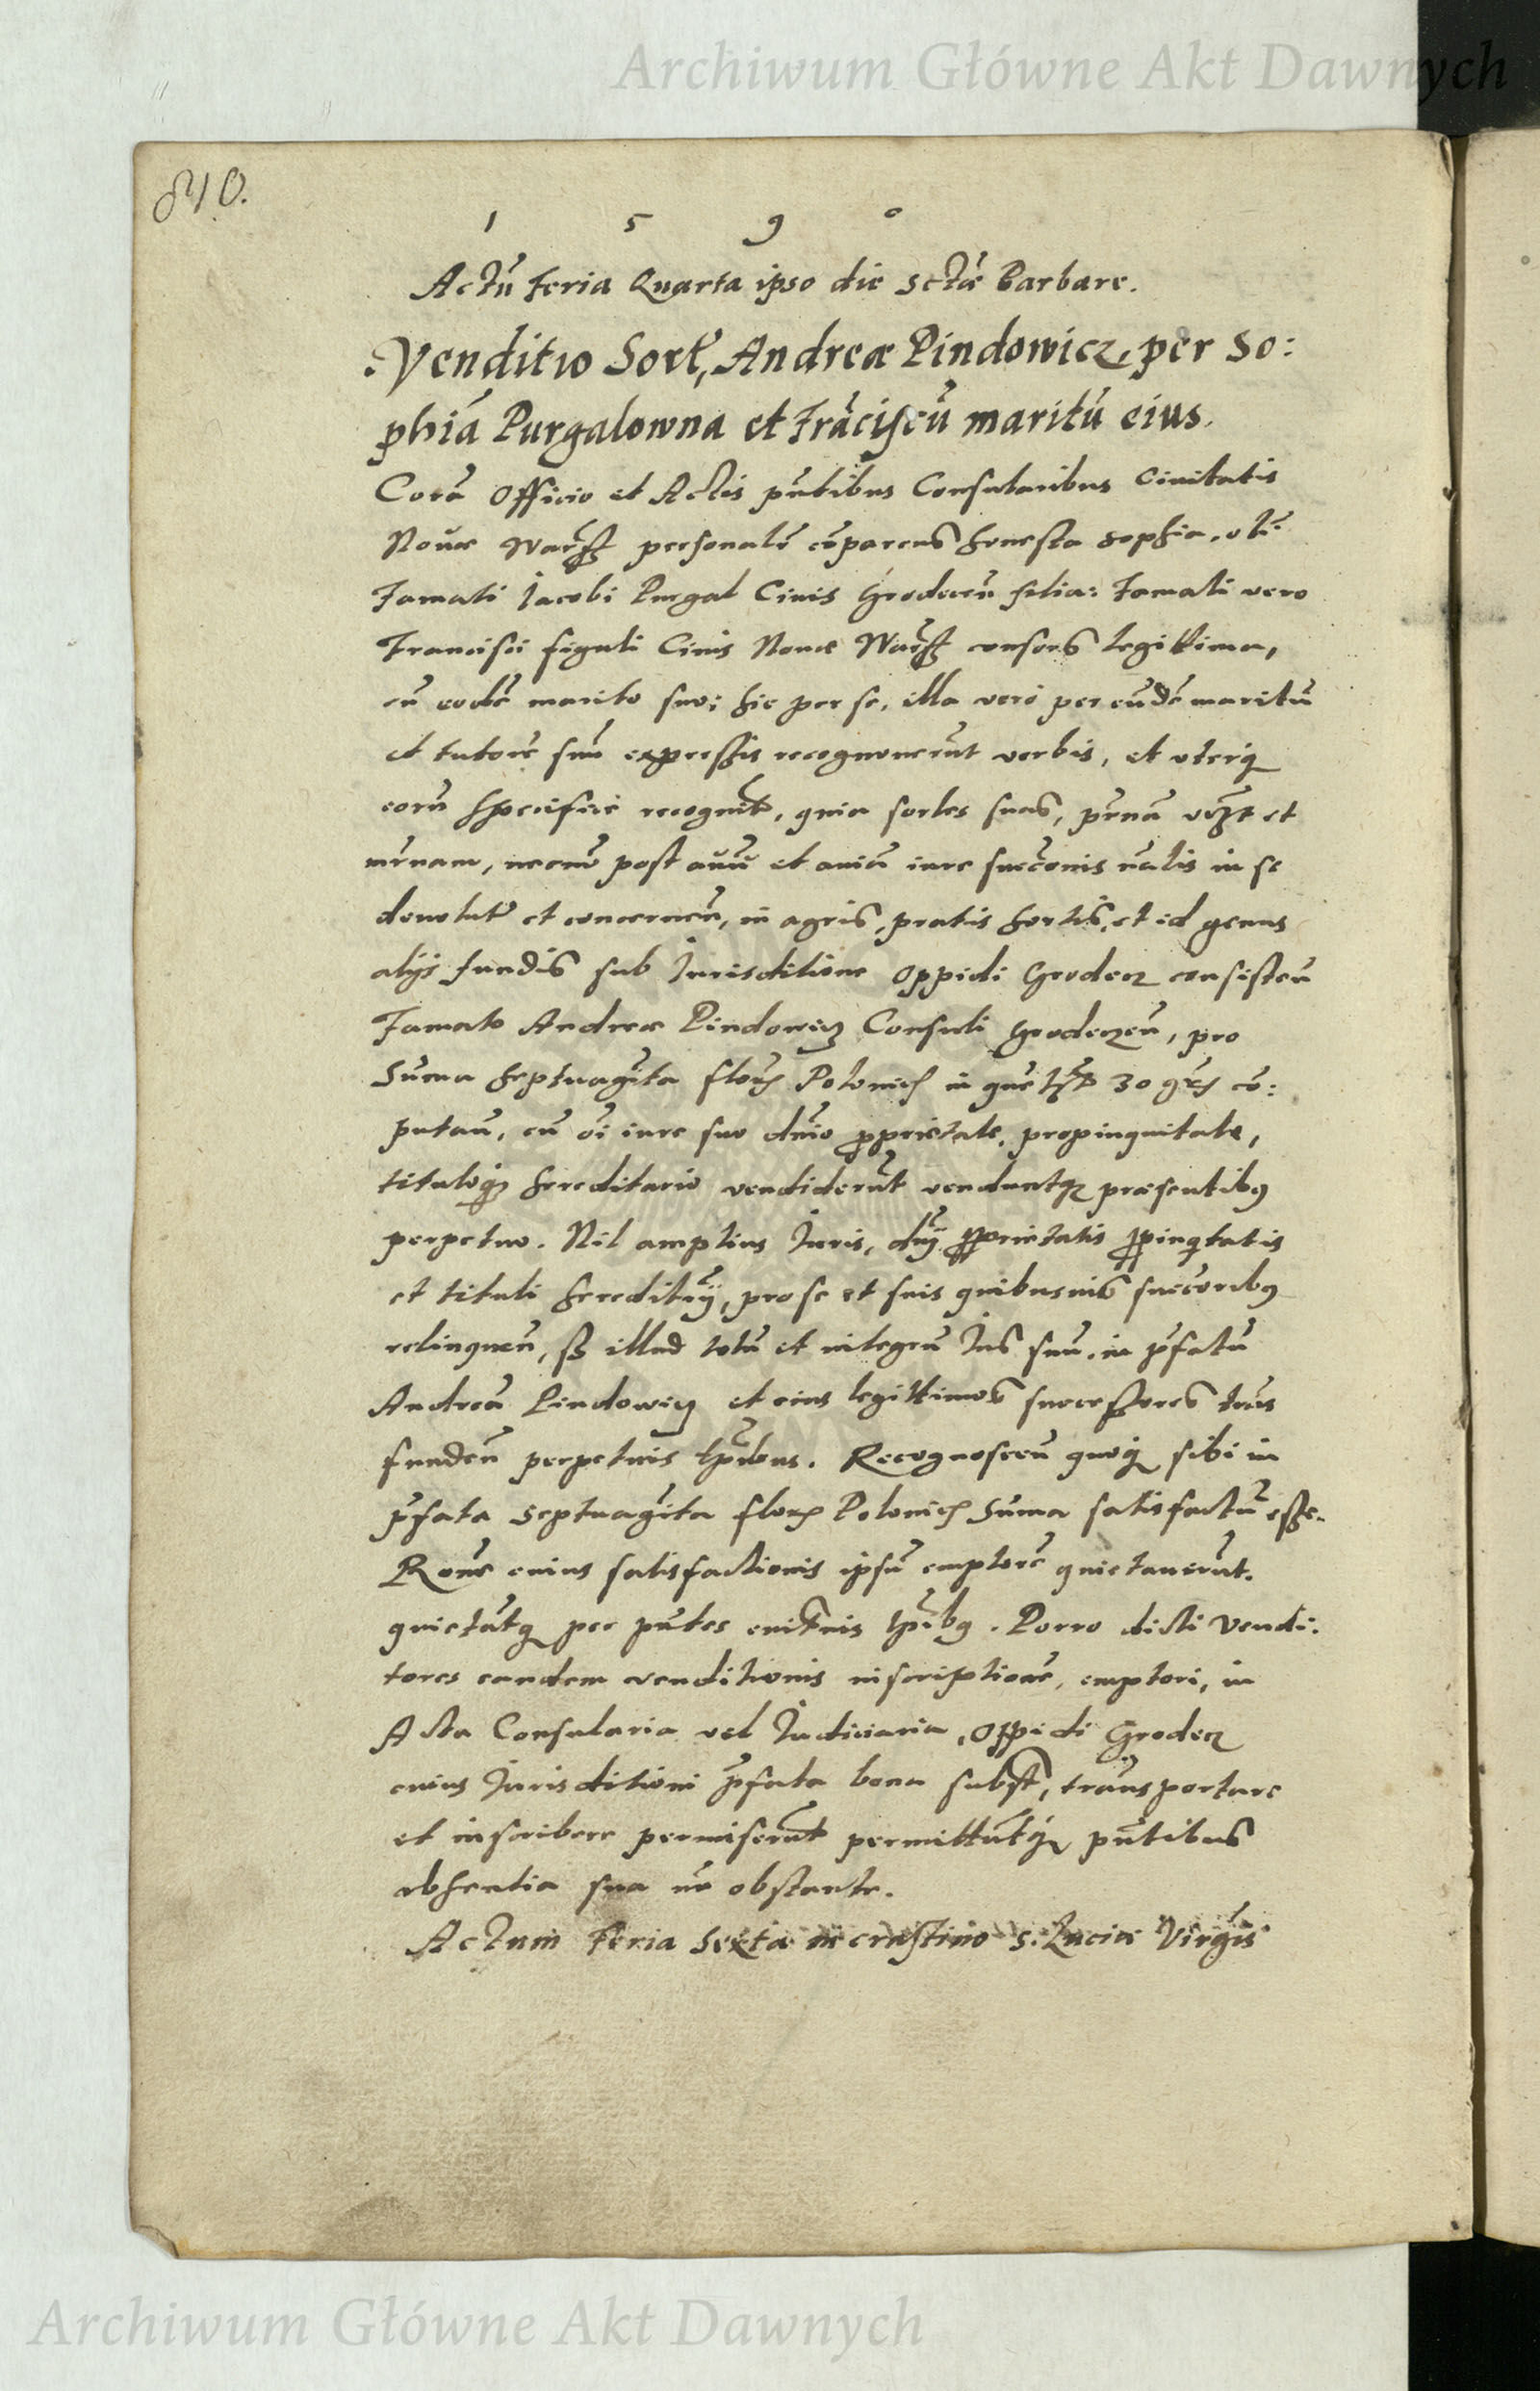 Archiwum Główne Akt Dawnych
810.
1 5 9 0
Actū feria Quarta ipso die Sctæ Barbare.
Venditio Sort, Andreæ Pindowicz, per So:
phiā Purgalowna et Frāciscū maritū eius.
Corā Officio et Actis pntibus Consularibus Ciuitatis
Nouæ personalr cōparens honesta Sophia, oli
Famati Jacobi Purgal Ciuis Grodecen filia: Famati vero
Francisci figuli Ciuis Nouæ consors legittima,
cū eodē marito suo; hic per se, illa vero per eūdē maritū
et tutorē suū expressis recognouerūt verbis, et vterq
eorū specifice recognit, quia sortes suas, prnā et
mrnam, necnō post auū et auiā iure succonis nalis in se
deuolut et concernen, in agris, pratis hortis, et id genus
alijs fundis sub Jurisditione Oppidi Grodecz consisten
Famato Andreæ Pindowicz Consuli Grodeczen, pro
Sūma septuagīta flor Polonic in 30 gr cō:
putan, cū oi iure suo dnio proprietate, propinquitate,
tituloq hereditario vendiderūt venduntq præsentibus
perpetuo. Nil amplius Juris, dnij proprietatis propinqtatis
et tituli hereditrij, pro se et suis quibusuis succoribus
relinquen, sz illud totū et integrū Jus suū, in pfatū
Andreā Pindowicz et eius legittimos successores trans
funden perpetuis tpribus. Recognoscen quoq sibi in
pfata septuagīta flor Polonic Sūma satisfactū esse.
Rone cuius satisfactionis ipsū emptorē quietauerūt.
quietātq per pntes euiternis tpribus. Porro dicti vendi:
tores eandem venditionis inscriptionē, emptori, in
Acta Consularia vel Judiciaria, Oppidi Grodecz
cuius Jurisditioni pfata bona subst, transportare
et inscribere permiserūt permittūtq pntibus
absentia sua nō obstante.
Actum Feria Sexta in crastino S. Luciæ Virgīs
Archiwum Główne Akt Dawnych